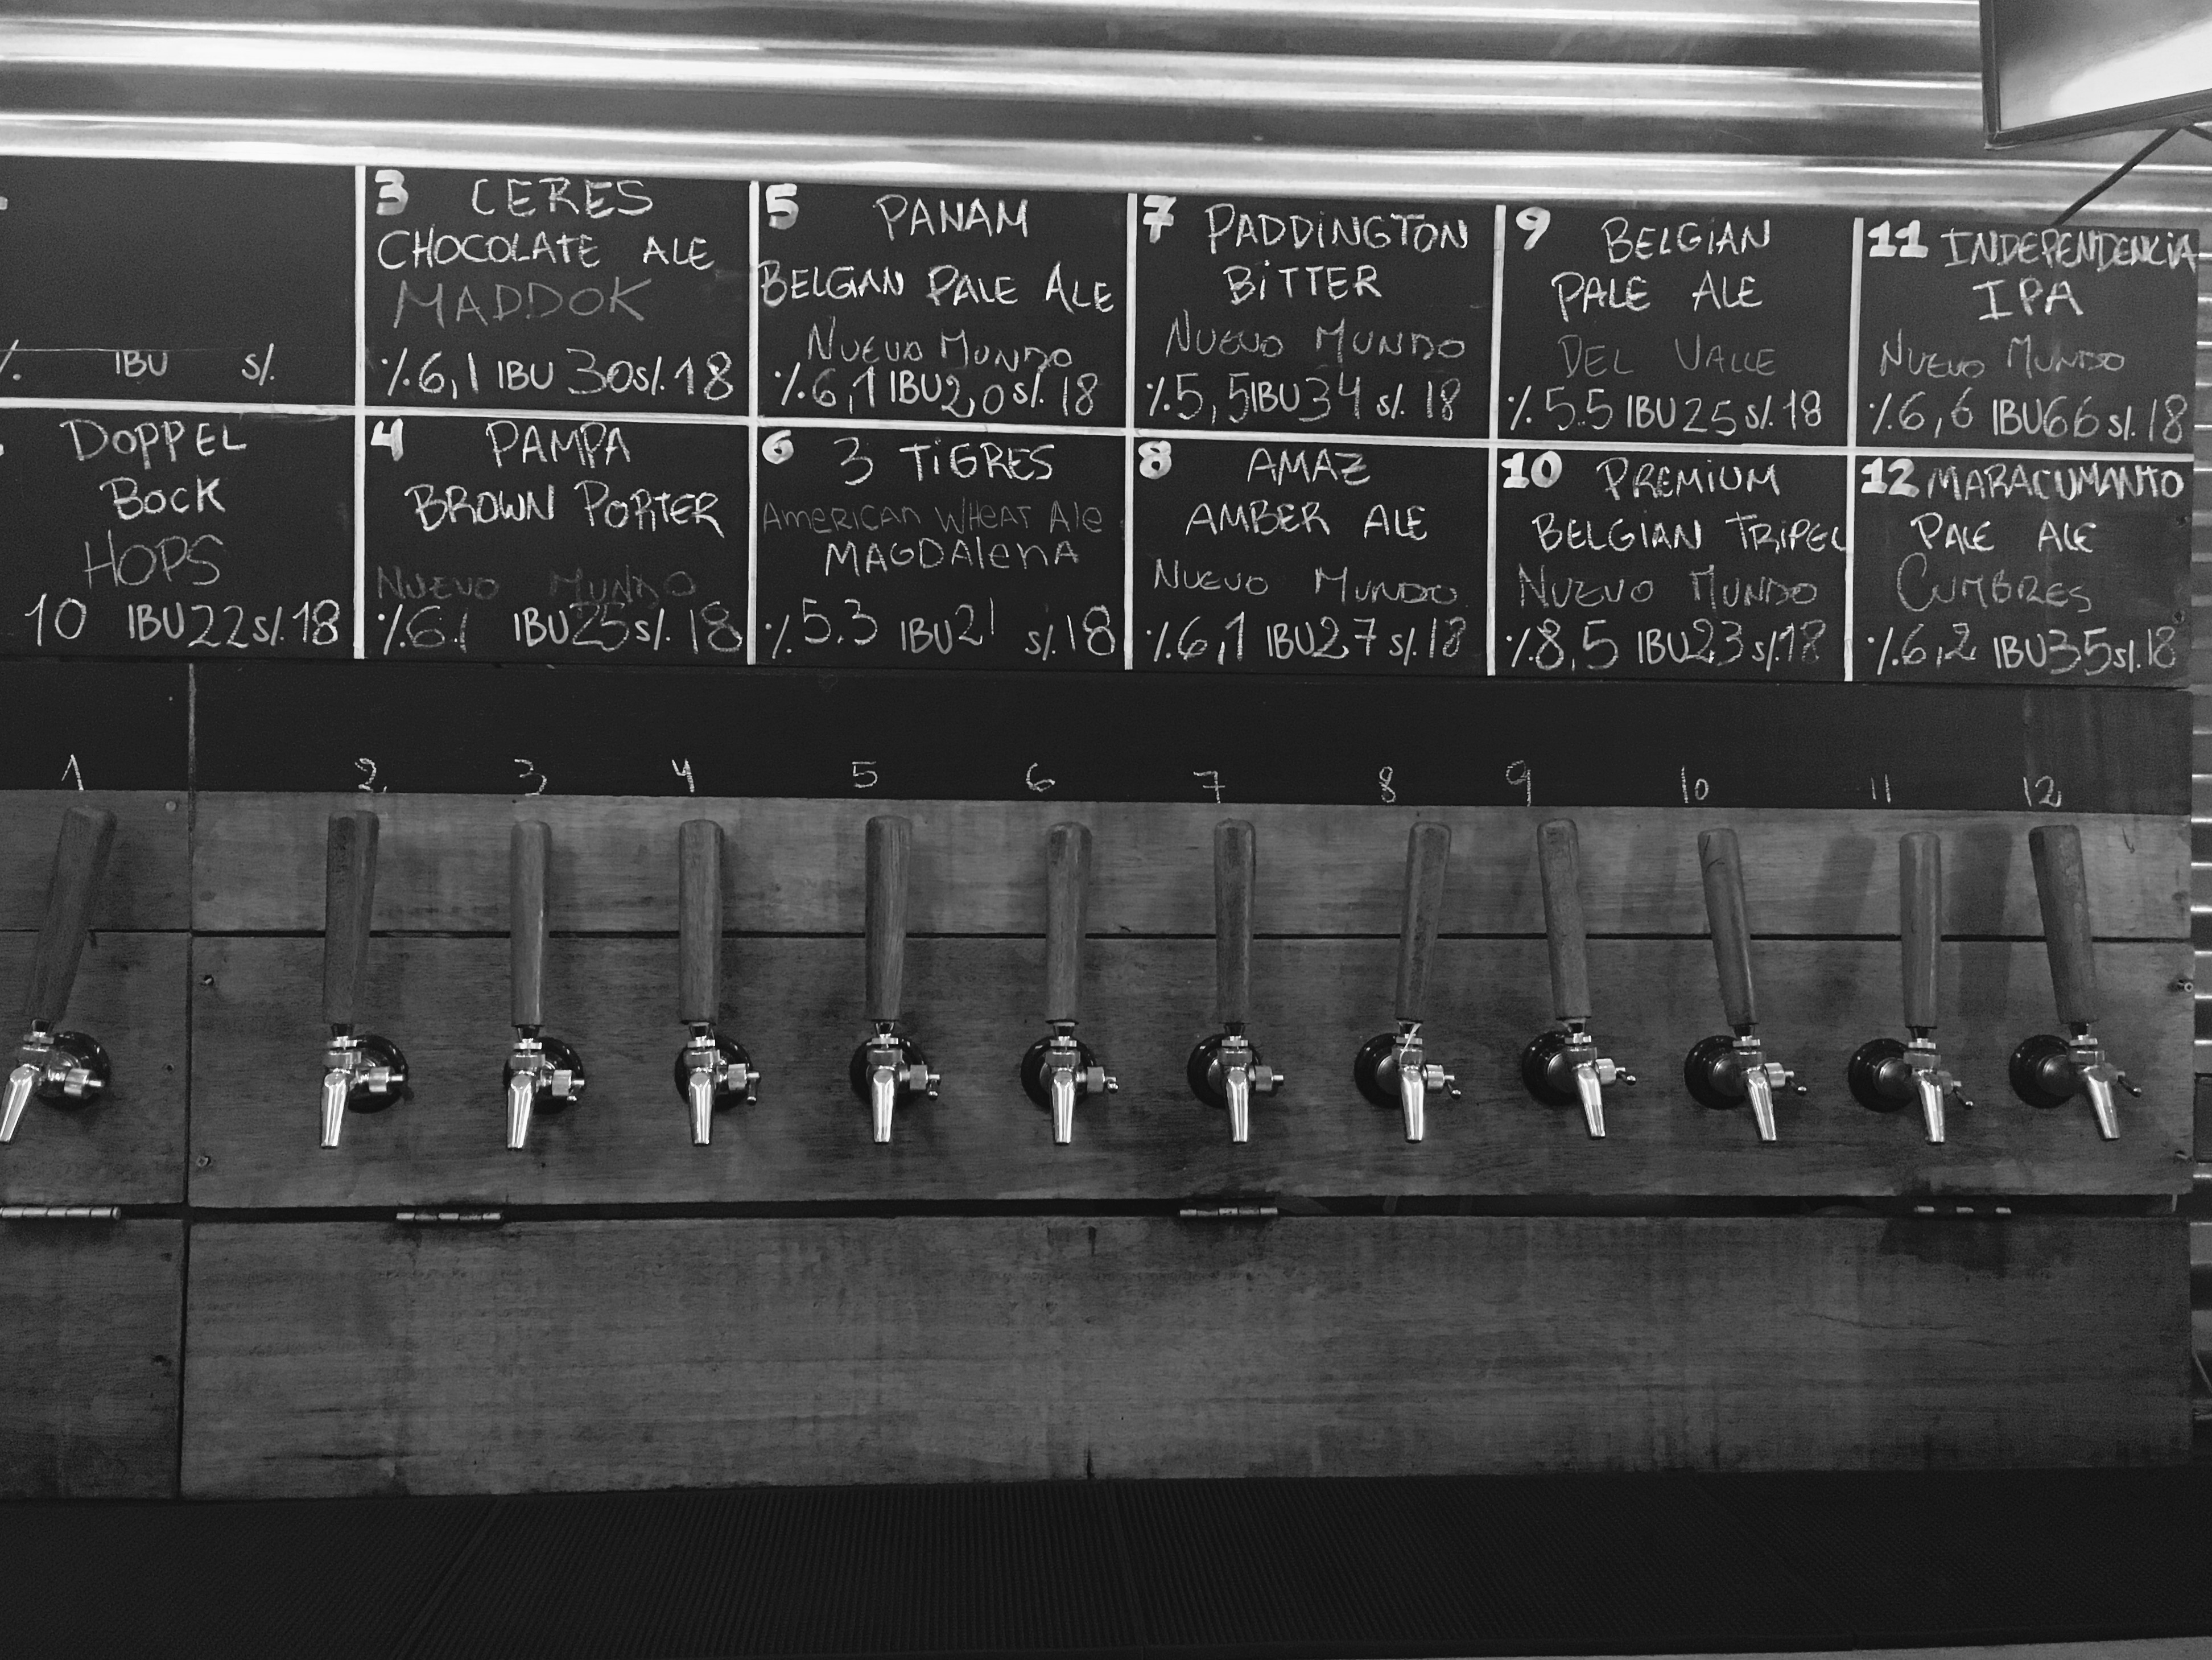 %. IBU s/.
DOPPEL
BOCK
HOPS
10 IBU 22 s/. 18
3 CERES
CHOCOLATE ALE
MADDOK
%6,1 IBU 30 s/. 18
4 PAMPA
BROWN PORTER
NUEVO MUNDO
%6.1 IBU 25 s/. 18
5 PANAM
BELGIAN PALE ALE
NUEVO MUNDO
%6,1 IBU 2,0 s/. 18
6 3 TiGRES
AMERICAN WHEAT Ale
MAGDAlenA
%5.3 IBU 21 s/. 18
7 PADDINGTON
BiTTER
NUEVO MUNDO
%5,5 IBU 34 s/. 18
8 AMAZ
AMBER ALE
NUEVO MUNDO
%6,1 IBU 2,7 s/. 18
9 BELGIAN
PALE ALE
DEL VALLE
%5.5 IBU 25 s/. 18
10 PREMIUM
BELGIAN TRIPEL
NUEVO MUNDO
%8,5 IBU 23 s/. 18
11 INDEPENDENCIA
IPA
NUEVO MUNDO
%6,6 IBU 66 s/. 18
12 MARACUMANTO
PALE ALE
CUMBRES
%6,2 IBU 35 s/. 18
1 2 3 4 5 6 7 8 9 10 11 12